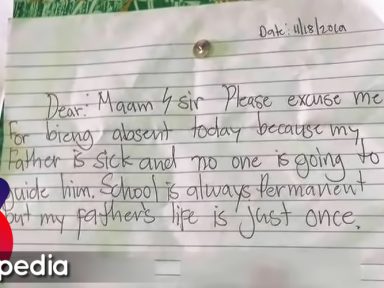 Date: 11/18/2019
Dear: Maam & sir Please excuse me
For bieng absent today because my
Father is sick and no one is going to
guide him. School is always Permanent
but my father's life is just once.
pedia